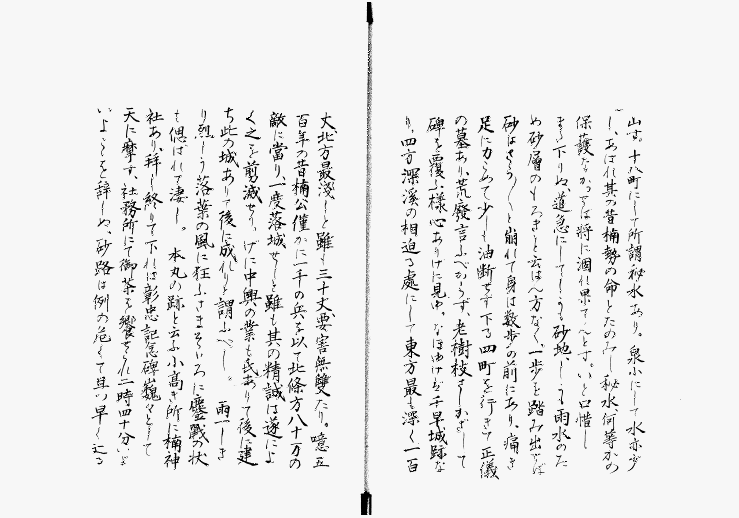 山す。十八町にして所謂秘水あり。泉小にして水亦少
し、あはれ其の昔楠勢の命とたのみし秘水、何等かの
保護なかつせば将に涸れ果てんとす。いと口惜し
まゝ下りぬ、道急にしてしかも砂地、しかも雨水のた
め砂層のもろきこと云はん方なく一歩を踏み出せば
砂はさら〳〵と崩れて身は数歩の前にあり、痛き
足に力こめて少しも油断せず下る四町を行きて正儀
の墓あり、荒廢言ふべからず、老樹枝さしかざして
碑を覆ふ様心ありげに見ゆ、なほゆけば千早城跡な
り、四方深溪の相迫る處にして東方最も深く一百
丈北方最淺しと雖も三十丈、要害無雙たり。噫五
百年の昔楠公僅かに一千の兵を以て北條方八十万の
敵に當り、一度落城せしと雖も其の精誠は遂によ
く之を剪滅せり、げに中興の業も氏ありて後に建
ち此の城ありて後に成れりと謂ふべし。 雨一しき
り烈しう落葉の風に狂ふさまそゞろに鏖戰の状
も偲ばれて凄し。 本丸の跡と云ふ小高き所に楠神
社あり、拜し終りて下れば彰忠記念碑巍々として
天に摩す、社務所にて御茶を饗せられ二時四十分いよ
いよこゝを辞しぬ、砂路は例の危くて且つ早く辷る